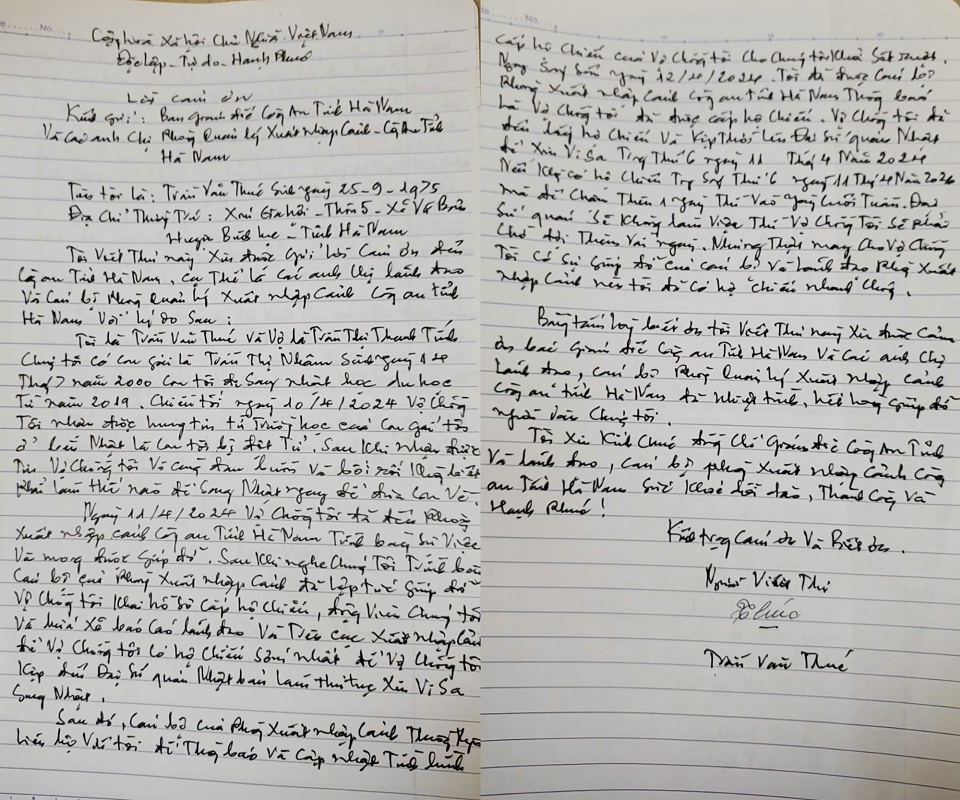 Cộng hoà Xã hội Chủ Nghĩa Việt Nam
Độc lập - Tự do - Hạnh Phúc
Lời cảm ơn
Kính gửi: Ban giám đốc Công An Tỉnh Hà Nam
Và các anh Chị Phòng Quản lý Xuất nhập Cảnh - Công An Tỉnh
Hà Nam
Tên tôi là: Trần Văn Thué Sinh ngày 25-9-1975
Địa Chỉ Thường Trú: Xóm Gia hội - Thôn 5 - Xã Vũ Bản
Huyện Bình lục - Tỉnh Hà Nam
Tôi Viết Thư này Xin được Gửi lời Cảm ơn đến
Công an Tỉnh Hà Nam, Cụ Thể là Các anh Chị lãnh đạo
Và Cán bộ Phòng Quản lý Xuất nhập Cảnh Công an tỉnh
Hà Nam Với lý do Sau:
Tôi là Trần Văn Thué Và Vợ là Trần Thị Thanh Tính
Chúng tôi có Con gái là Trần Thị Nhâm Sinh ngày 14
Tháng 7 năm 2000 Con tôi đi Sang nhật học du học
Từ năm 2019. Chiều tối ngày 10/4/2024 Vợ Chồng
Tôi nhận được hung tin từ Trường học của Con gái tôi
ở bên Nhật là Con tôi bị đột Tử. Sau Khi nhận được
Tin Vợ Chồng tôi Vô cùng đau buồn Và bối rối Không biết
Phải làm thế nào để Sang Nhật ngay để đưa Con Về.
Ngày 11/4/2024 Vợ Chồng tôi đã đến Phòng
Xuất nhập cảnh Công an Tỉnh Hà Nam Trình bày Sự Việc
Và mong được Giúp đỡ. Sau Khi nghe Chúng Tôi Trình bày
Cán bộ của Phòng Xuất nhập Cảnh đã lập tức Giúp đỡ
Vợ Chồng tôi Khai hồ Sơ Cấp hộ Chiếu, động Viên Chúng tôi
Và báo Cáo lãnh đạo Và Cục Xuất nhập Cảnh
để Vợ Chồng tôi Có hộ Chiếu Sớm nhất để Vợ Chồng tôi
Kịp đến Đại Sứ quán Nhật bản làm thủ tục Xin Vi Sa
Sang Nhật.
Sau đó, Cán bộ của Phòng Xuất nhập Cảnh Thường Xuyên
liên hệ Với tôi để Thông báo Và Cập nhật Tình hình
Cấp hộ Chiếu của Vợ Chồng tôi Cho Chúng tôi
Ngay Sáng Sớm ngày 12/4/2024. Tôi đã được Cán bộ
Phòng Xuất nhập Cảnh Công an tỉnh Hà Nam Thông báo
là Vợ Chồng tôi đã được cấp hộ Chiếu. Vợ Chồng tôi đã
đến lấy hộ Chiếu Và Kịp Thời lên Đại Sứ quán Nhật
để Xin Vi Sa Trong Thứ 6 ngày 11 Tháng 4 Năm 2024
Nếu Không có hộ Chiếu Trong Sáng Thứ 6 ngày 11 Tháng 4 Năm 2024
mà để Chậm Thêm 1 ngày Thì Vào ngày Cuối Tuần. Đại
Sứ quán Sẽ Không làm Việc Thì Vợ Chồng Tôi Sẽ phải
Chờ đợi Thêm Vài ngày. Nhưng Thật may Cho Vợ Chồng
Tôi Có Sự Giúp đỡ của cán bộ Và lãnh đạo Phòng Xuất
nhập Cảnh nên tôi đã Có hộ Chiếu nhanh Chóng.
Bằng tấm lòng biết ơn tôi Viết Thư này Xin được Cảm
ơn ban Giám đốc Công an Tỉnh Hà Nam Và Các anh Chị
lãnh đạo, cán bộ Phòng Quản lý Xuất nhập Cảnh
Công an tỉnh Hà Nam đã nhiệt tình, hết lòng giúp đỡ
người dân Chúng tôi.
Tôi Xin Kính Chúc đồng Chí Giám đốc Công An Tỉnh
Và lãnh đạo, Cán bộ phòng Xuất nhập Cảnh Công
an Tỉnh Hà Nam Sức Khoẻ dồi dào, Thành Công Và
Hạnh Phúc!
Kính trọng Cảm ơn Và Biết ơn.
Người Viết Thư
Trần Văn Thué